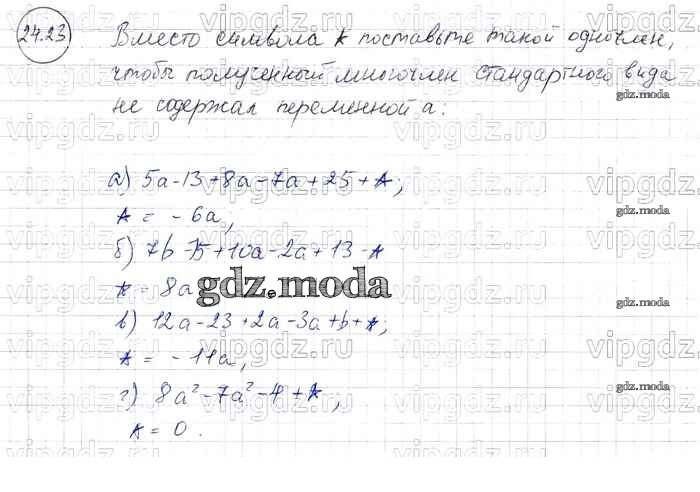 24.23
Вместо символа * поставьте такой одночлен,
чтобы полученный многочлен стандартного вида
не содержал переменной а:
а) 5a-13+8a-7a+25+*;
* = -6a,
б) 7b-15+10a-2a+13-*
* = 8a
в) 12a-23+2a-3a+b+*;
* = -11a,
г) 8a²-7a²-4+*,
* = 0.
gdz.moda
vipgdz.ru